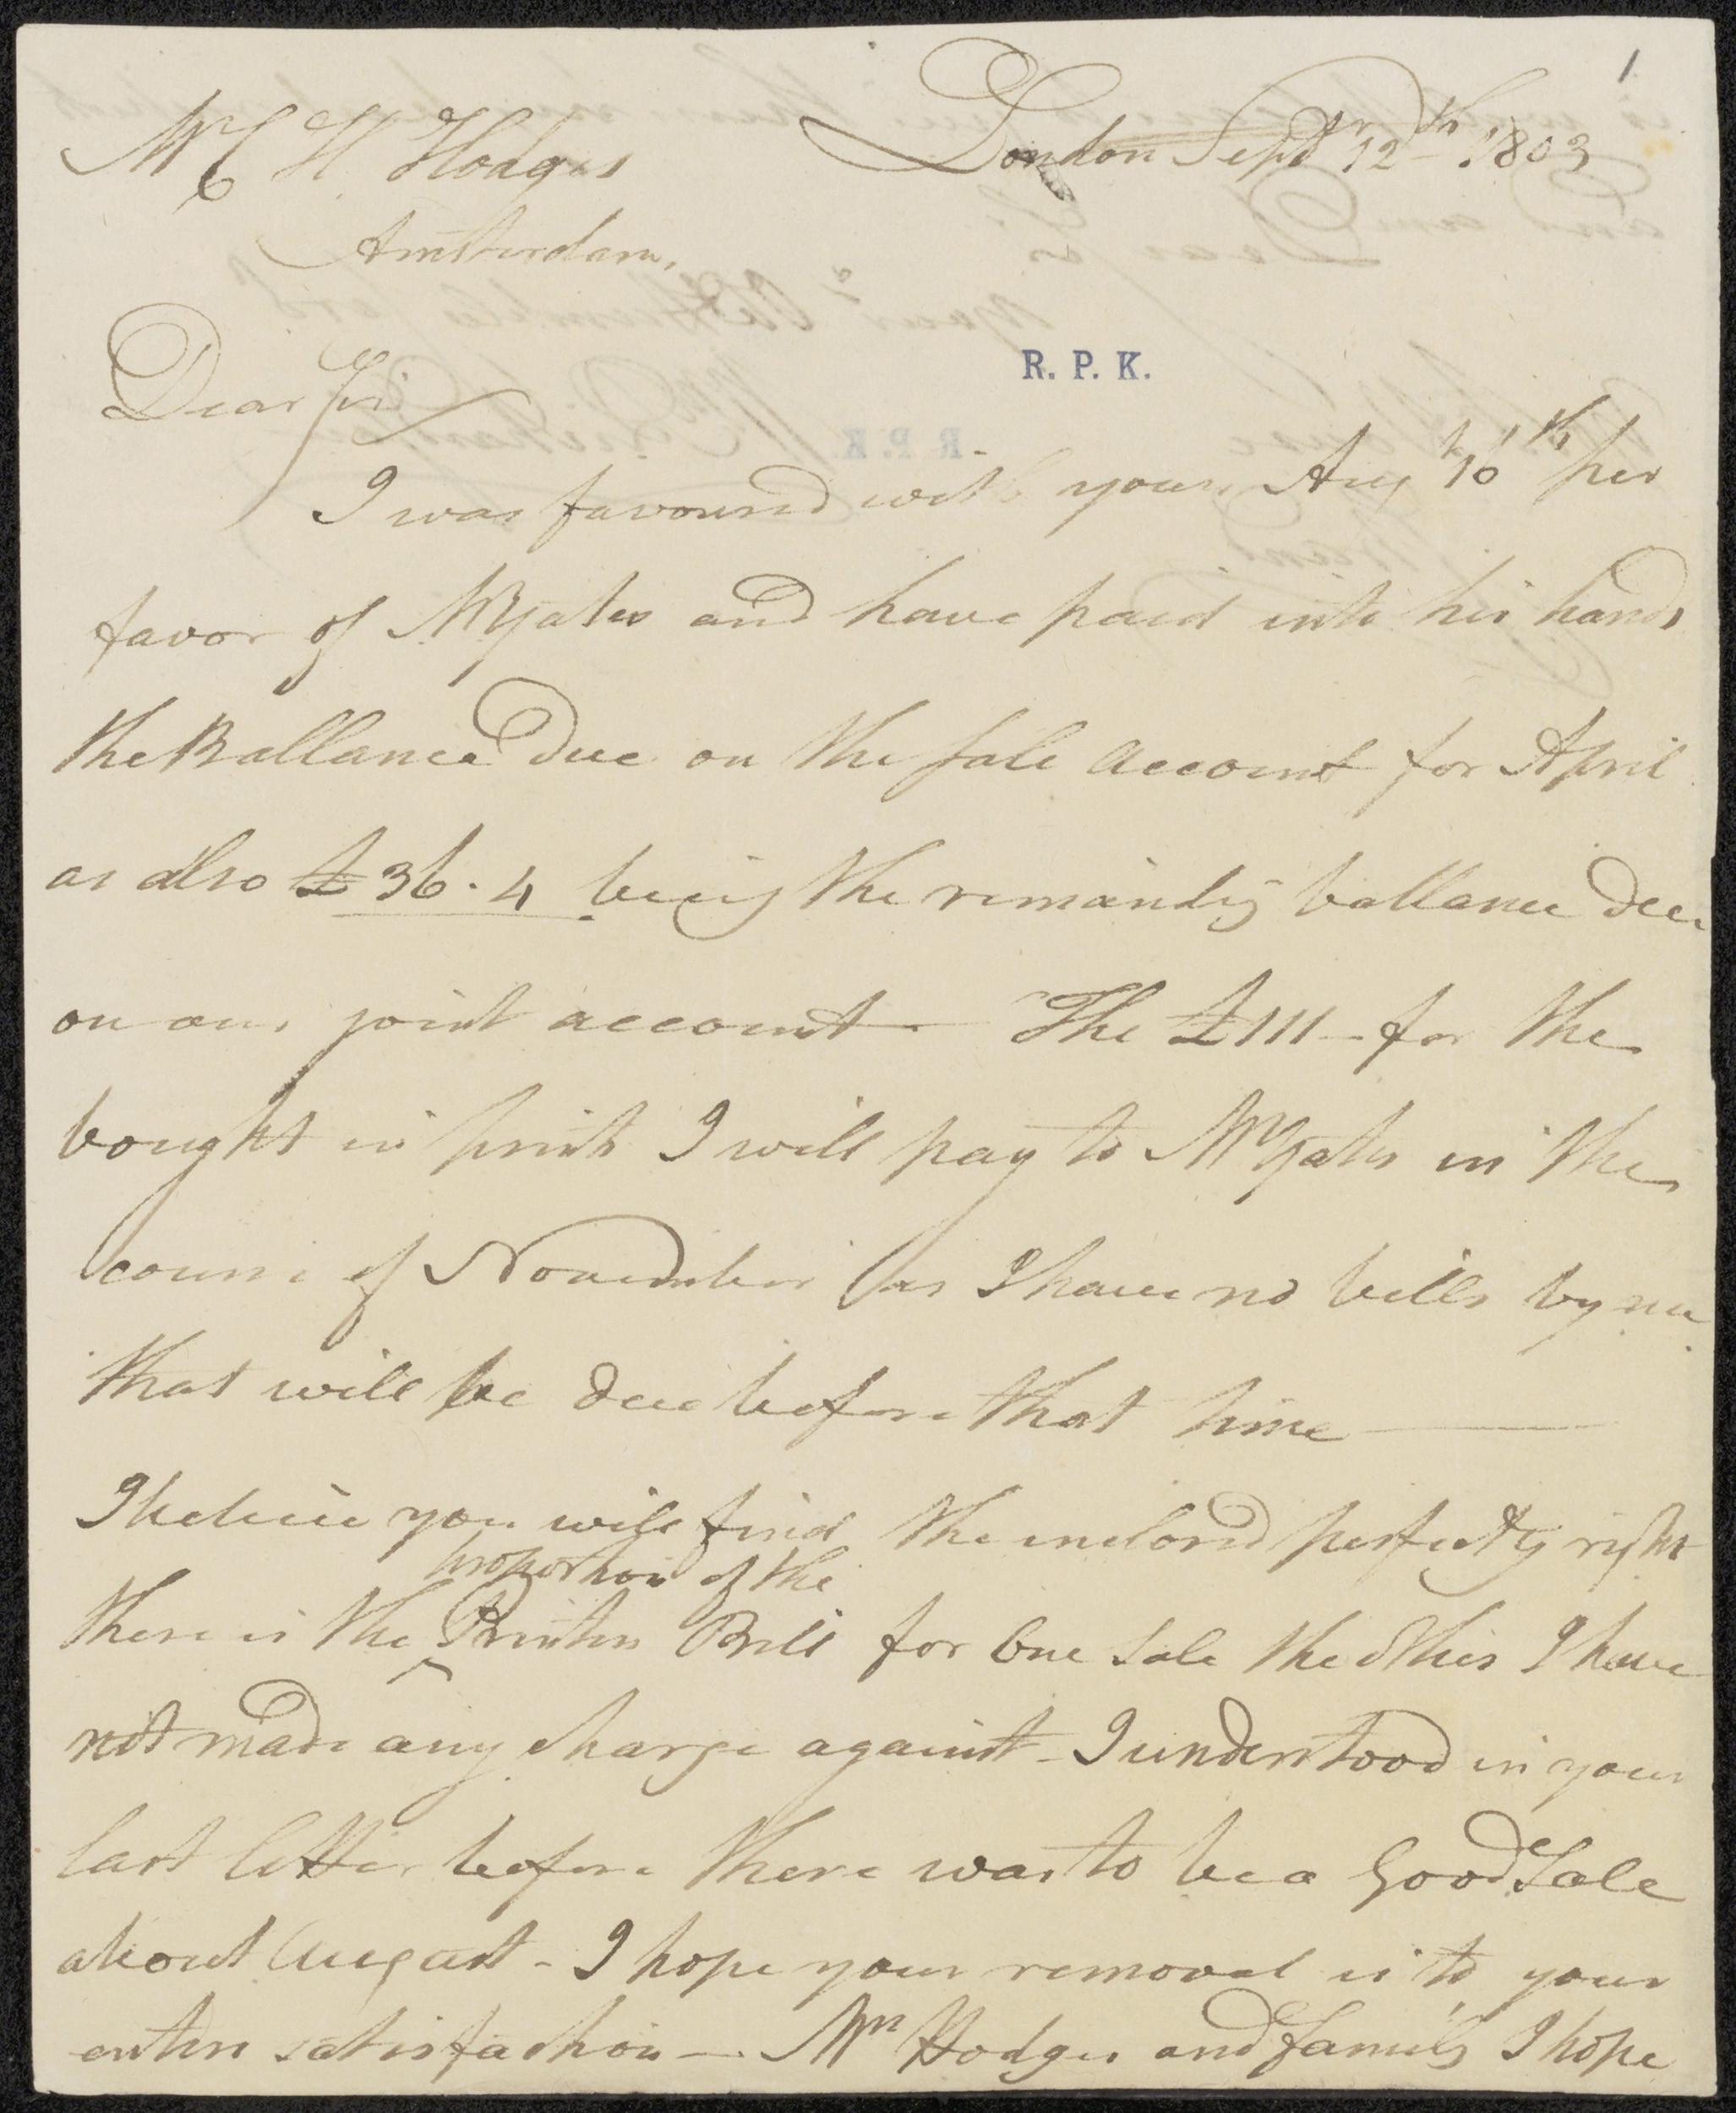 1
London Septr 12th 1803
Mr C H. Hodges
Amsterdam,
Dear Sir
R. P. K.
I was favoured with yours Augt 10th per
favor of Mr Yates and have paid into his hands
the Ballance due on the sale account for April
as also £36.4 being the remaindg ballance due
on our joint account. The £111 - for the
bought in prints I will pay to Mr Yates in the
course of November as I have no bills by me
that will be due before that time
I believe you will find the inclosed perfectly right
proportion of the
there is the ^ Printers Bill for One Sale the other I have
not made any charge against - I understood in your
last letter before there was to be a Good Sale
about August - I hope your removal is to your
entire satisfaction - Mrs Hodges and family I hope